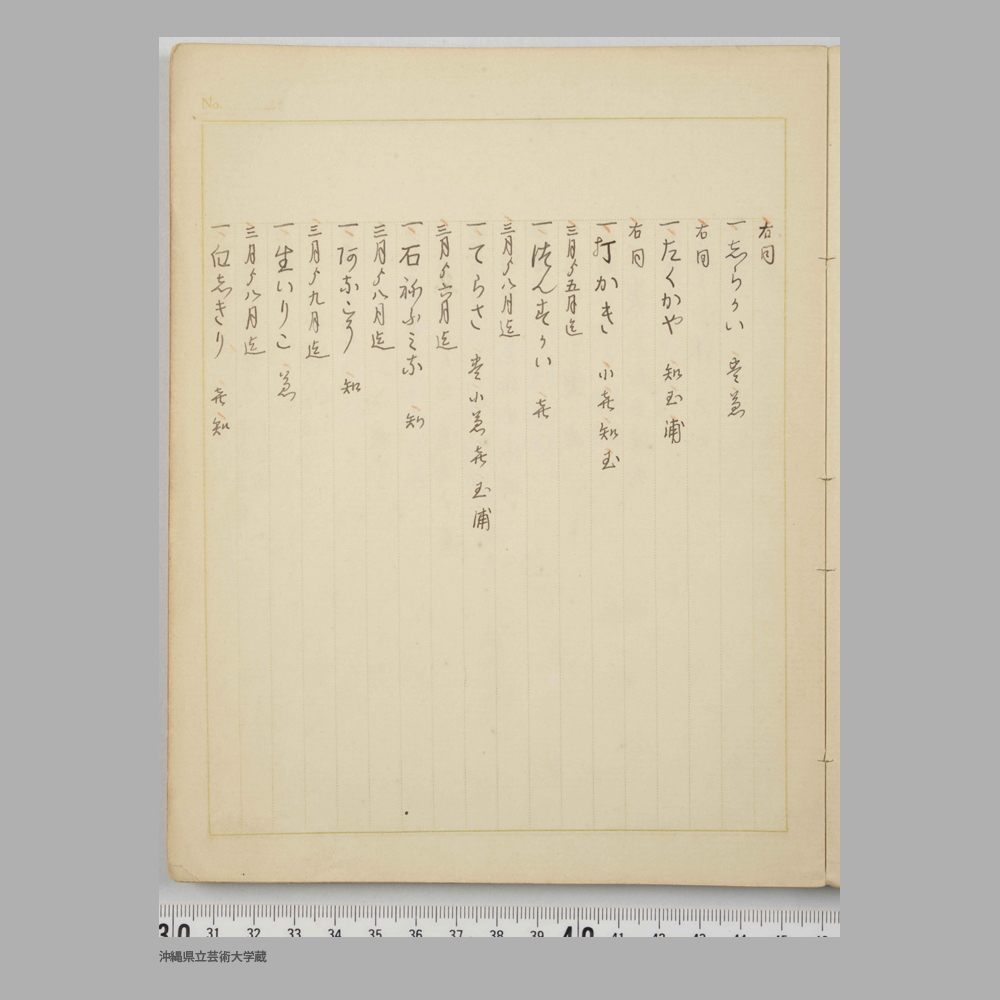 No.
右同
一 志らかい 喜
右同
一 たくかや 知玉浦
右同
一 打かき 小㐂知玉
三月ゟ五月迄
一 はんすかい 㐂
三月ゟ八月迄
一 てらさ 小 㐂玉浦
三月ゟ六月迄
一 石 知
三月ゟ八月迄
一 阿な 知
三月ゟ九月迄
一 生いりこ
三月ゟ八月迄
一 白志きり 㐂知
30 31 32 33 34 35 36 37 38 39 40 41 42 43 44 45 46
沖縄県立芸術大学蔵